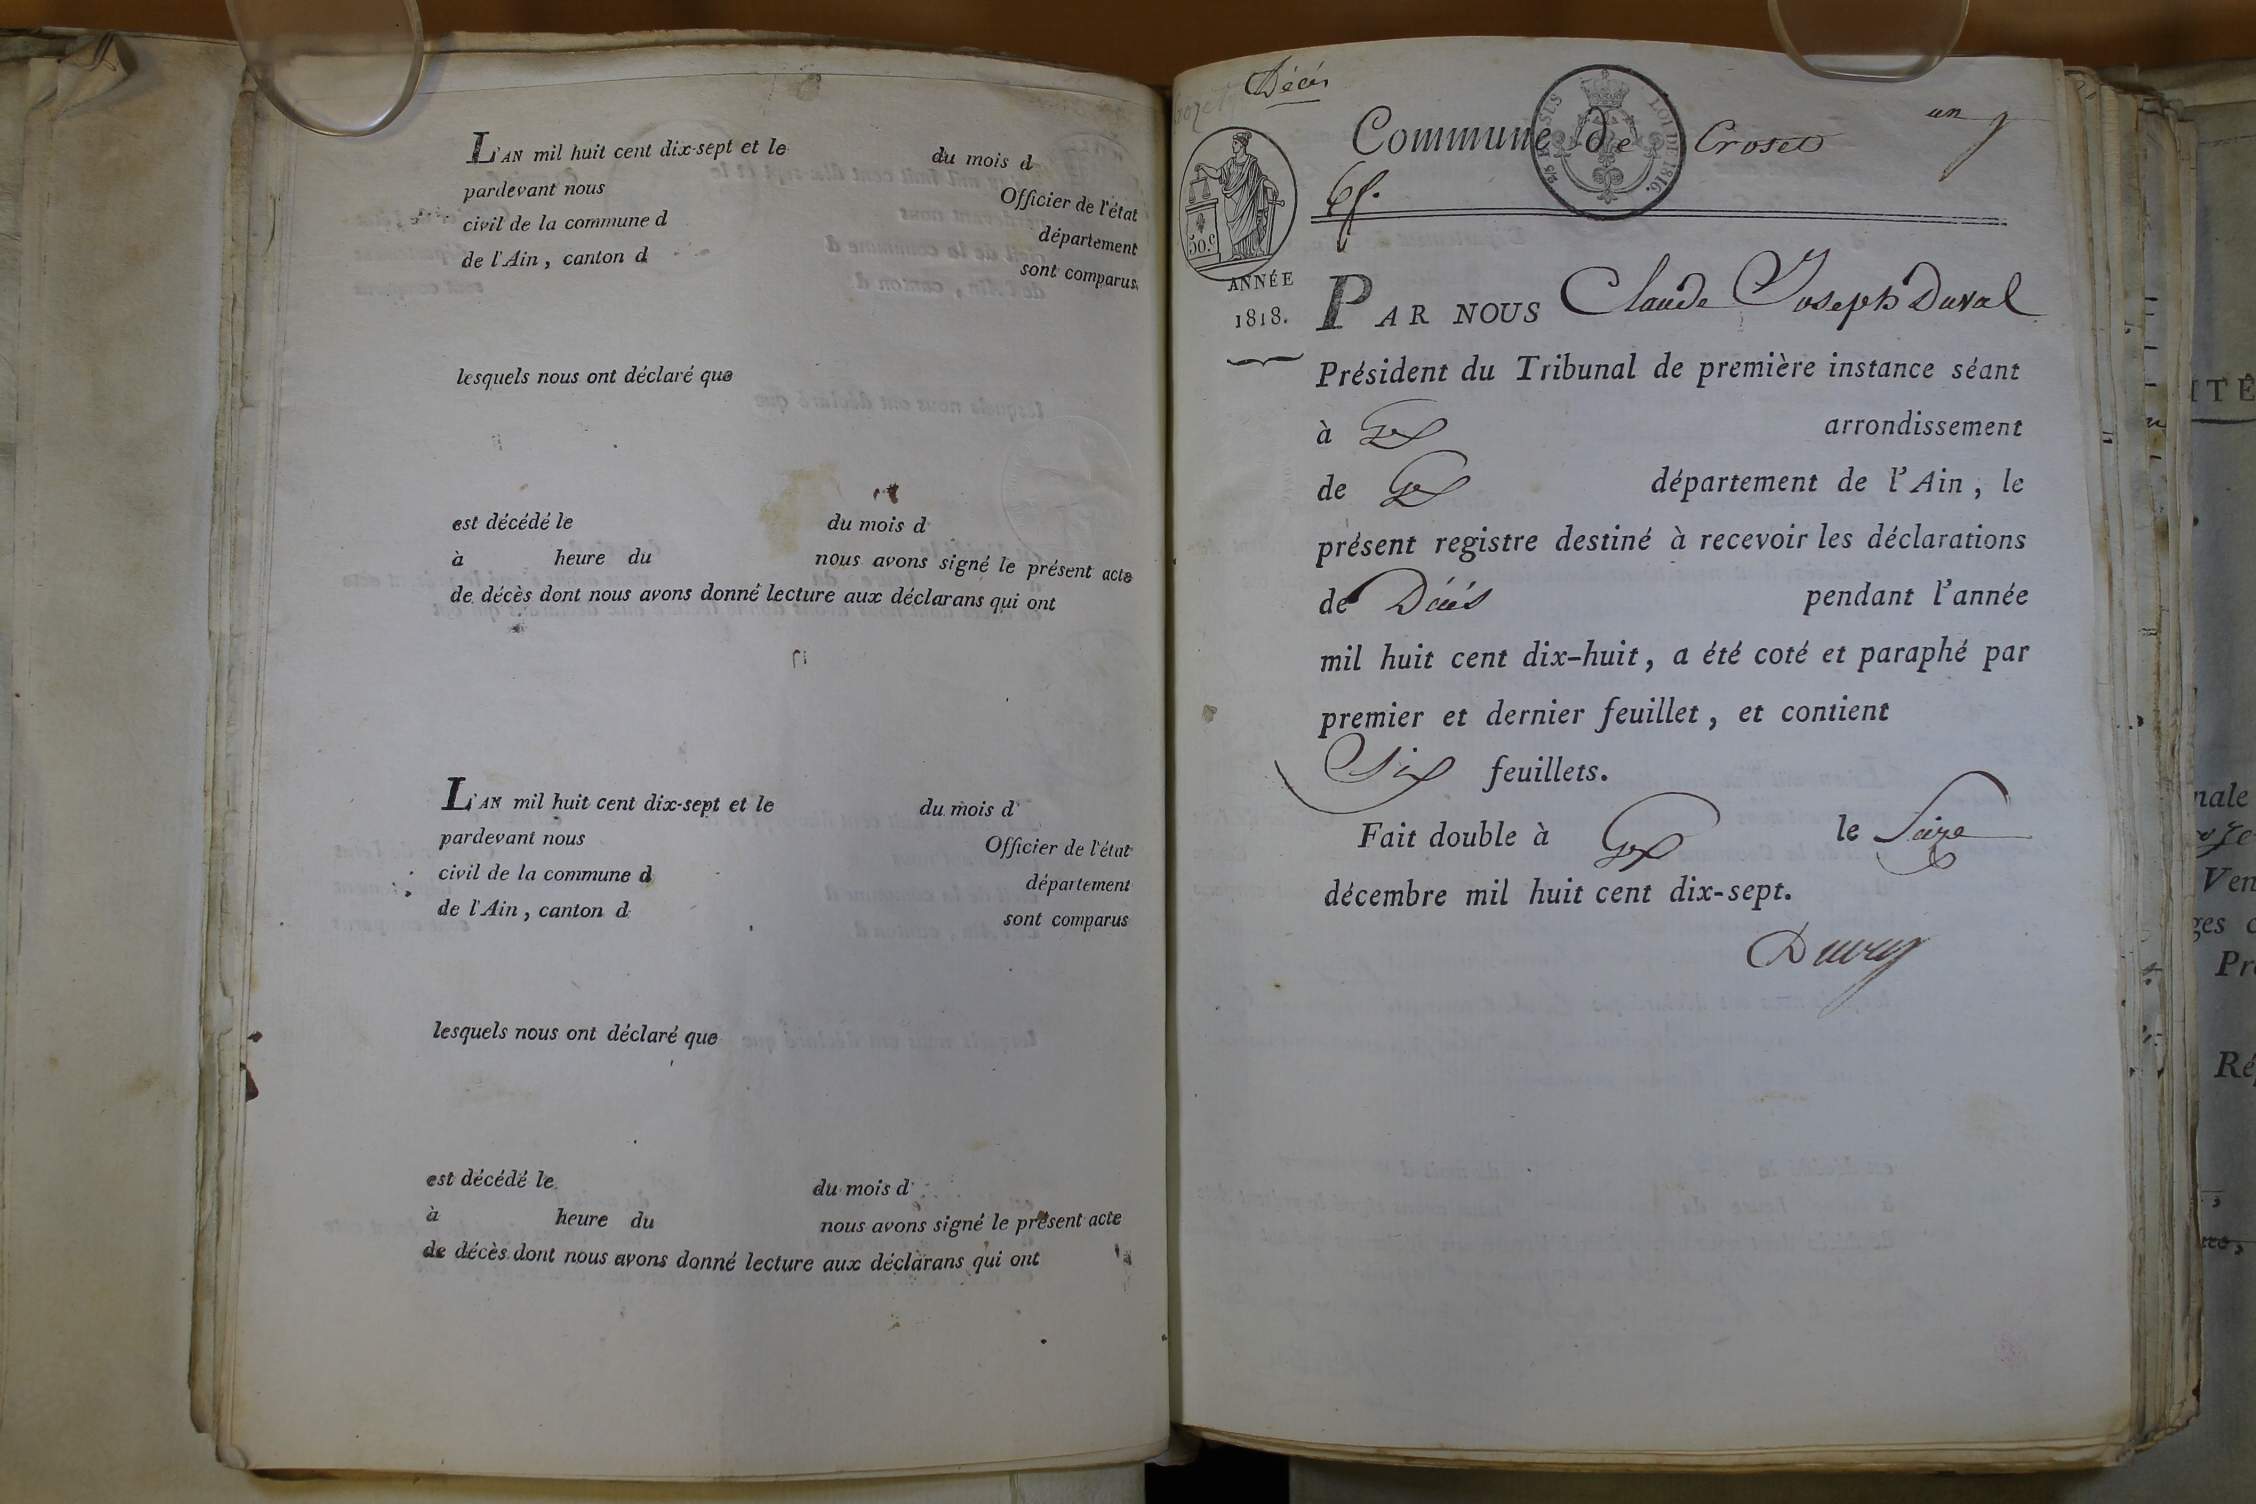 L'AN mil huit cent dix-sept et le du mois d
pardevant nous Officier de l'état
civil de la commune d département
de l'Ain, canton d sont comparus
lesquels nous ont déclaré que
est décédé le du mois d
à heure du nous avons signé le présent acte
de décès dont nous avons donné lecture aux déclarans qui ont
L'AN mil huit cent dix-sept et le du mois d
pardevant nous Officier de l'état
civil de la commune d département
de l'Ain, canton d sont comparus
lesquels nous ont déclaré que
est décédé le du mois d
à heure du nous avons signé le présent acte
de décès dont nous avons donné lecture aux déclarans qui ont
Décès
un
Commune de Crozet
LOI DE 1816.
6 f.
50.c
ANNÉE
1818.
PAR NOUS Claude Joseph Duval
Président du Tribunal de première instance séant
à Gex arrondissement
de Gex département de l'Ain, le
présent registre destiné à recevoir les déclarations
de Décès pendant l'année
mil huit cent dix-huit, a été coté et paraphé par
premier et dernier feuillet, et contient
Six feuillets.
Fait double à Gex le Seize
décembre mil huit cent dix-sept.
Duval